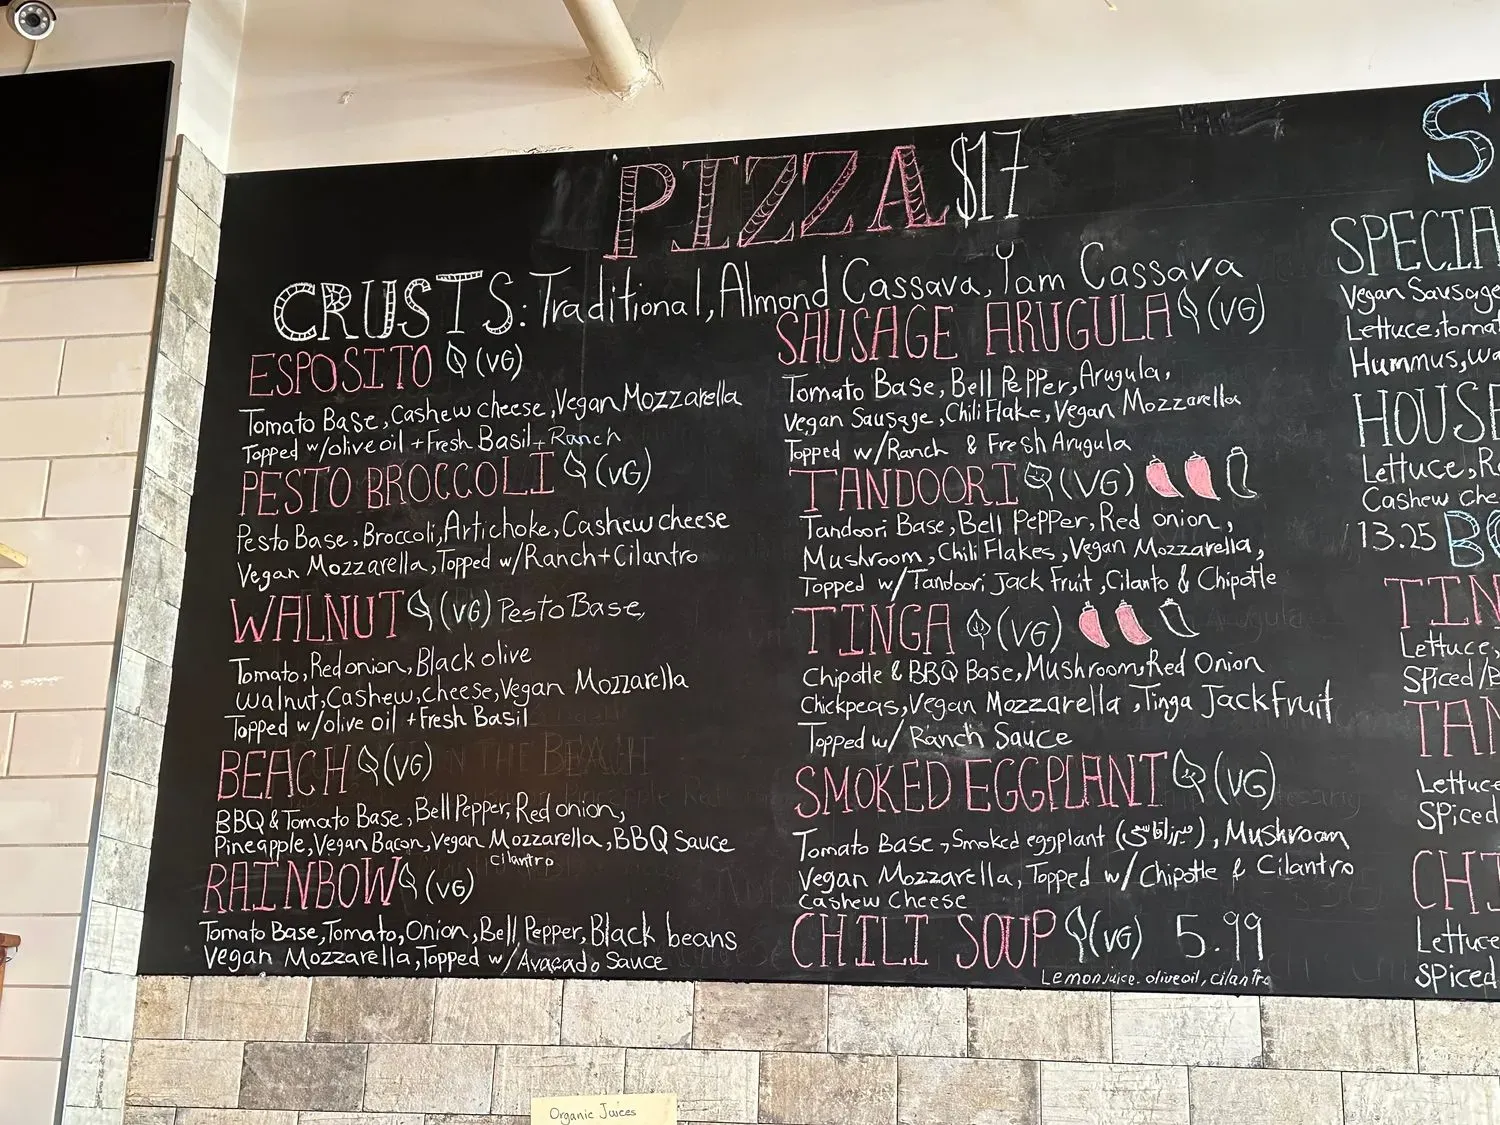 PIZZA $17
CRUSTS: Traditional, Almond Cassava, Yam Cassava
ESPOSITO (VG)
Tomato Base, Cashew cheese, Vegan Mozzarella
Topped w/olive oil + Fresh Basil + Ranch
PESTO BROCCOLI (VG)
Pesto Base, Broccoli, Artichoke, Cashew cheese
Vegan Mozzarella, Topped w/Ranch + Cilantro
WALNUT (VG) Pesto Base,
Tomato, Red onion, Black olive
Walnut, Cashew, cheese, Vegan Mozzarella
Topped w/olive oil + Fresh Basil
BEACH (VG)
BBQ & Tomato Base, Bell Pepper, Red onion,
Pineapple, Vegan Bacon, Vegan Mozzarella, BBQ Sauce
cilantro
RAINBOW (VG)
Tomato Base, Tomato, Onion, Bell Pepper, Black beans
Vegan Mozzarella, Topped w/Avacado Sauce
SAUSAGE ARUGULA (VG)
Tomato Base, Bell Pepper, Arugula,
Vegan Sausage, Chili Flake, Vegan Mozzarella
Topped w/Ranch & Fresh Arugula
TANDOORI (VG)
Tandoori Base, Bell Pepper, Red onion,
Mushroom, Chili Flakes, Vegan Mozzarella,
Topped w/Tandoori Jack Fruit, Cilanto & Chipotle
TINGA (VG)
Chipotle & BBQ Base, Mushroom, Red Onion
Chickpeas, Vegan Mozzarella, Tinga Jackfruit
Topped w/ Ranch Sauce
SMOKED EGGPLANT (VG)
Tomato Base, Smoked eggplant (میرزاقاسمی), Mushroom
Vegan Mozzarella, Topped w/ Chipotle & Cilantro
Cashew Cheese
CHILI SOUP (VG) 5.99
Lemon juice, olive oil, cilantro
S
SPECIA
Vegan Sausage
Lettuce, tomat
Hummus, wa
HOUSE
Lettuce, R
Cashew che
13.25 BO
TIN
Lettuce,
Spiced/B
TAN
Lettuce
Spiced
CHI
Lettuce
Spiced
Organic Juices